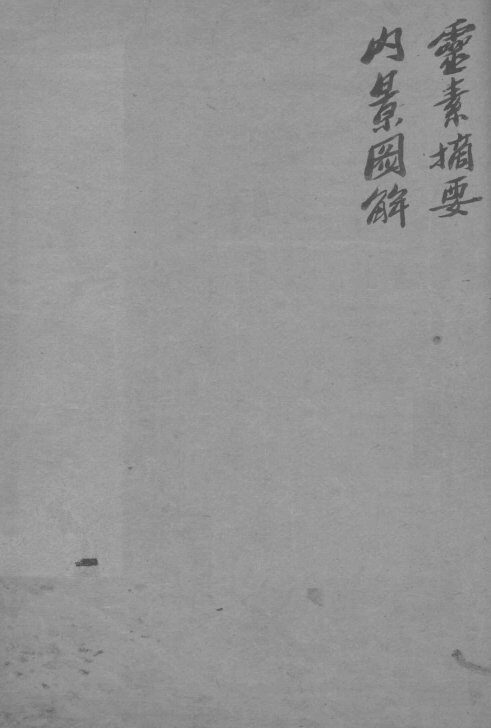 靈素摘要
內景圖解